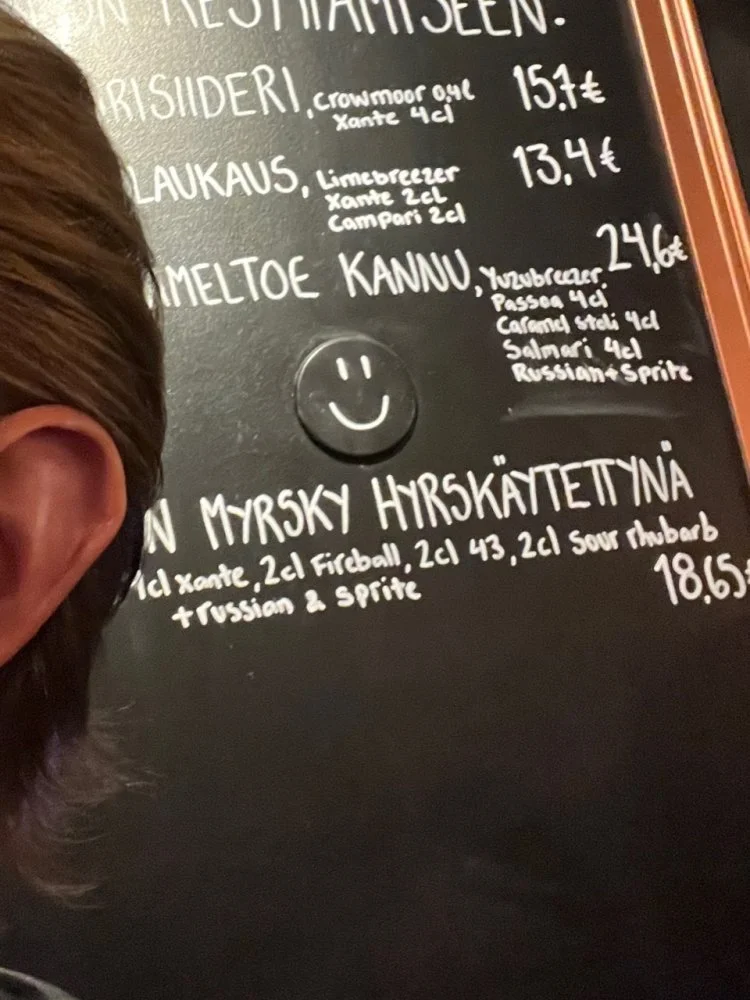 ON KESYTTÄMISEEN.
RISIIDERI, Crowmoor 0,4l 15,7€
Xante 4cl
LAUKAUS, Limebreezer 13,4€
Xante 2cl
Campari 2cl
MELTOE KANNU, Yuzubreezer, 24,6€
Passoa 4cl
Caramel stoli 4cl
Salmari 4cl
Russian+Sprite
N MYRSKY HYRSKÄYTETTYNÄ
1cl Xante, 2cl Fireball, 2cl 43, 2cl Sour rhubarb
+russian & sprite 18,65